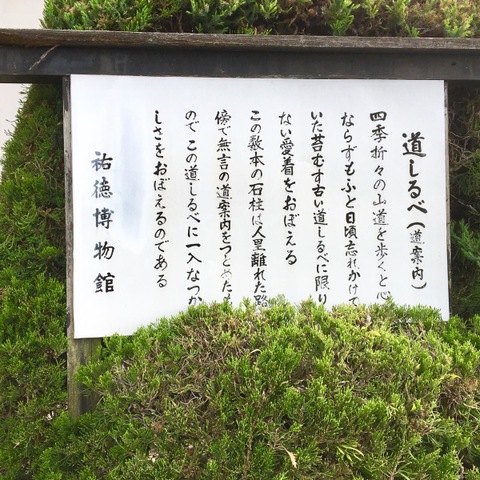 道しるべ(道案内)
四季折々の山道を歩くと心
ならずもふと日頃忘れかけて
いた苔むす古い道しるべに限り
ない愛着をおぼえる
この数本の石柱は人里離れた路
傍で無言の道案内をつとめたも
のでこの道しるべに一入なつか
しさをおぼえるのである
祐徳博物館